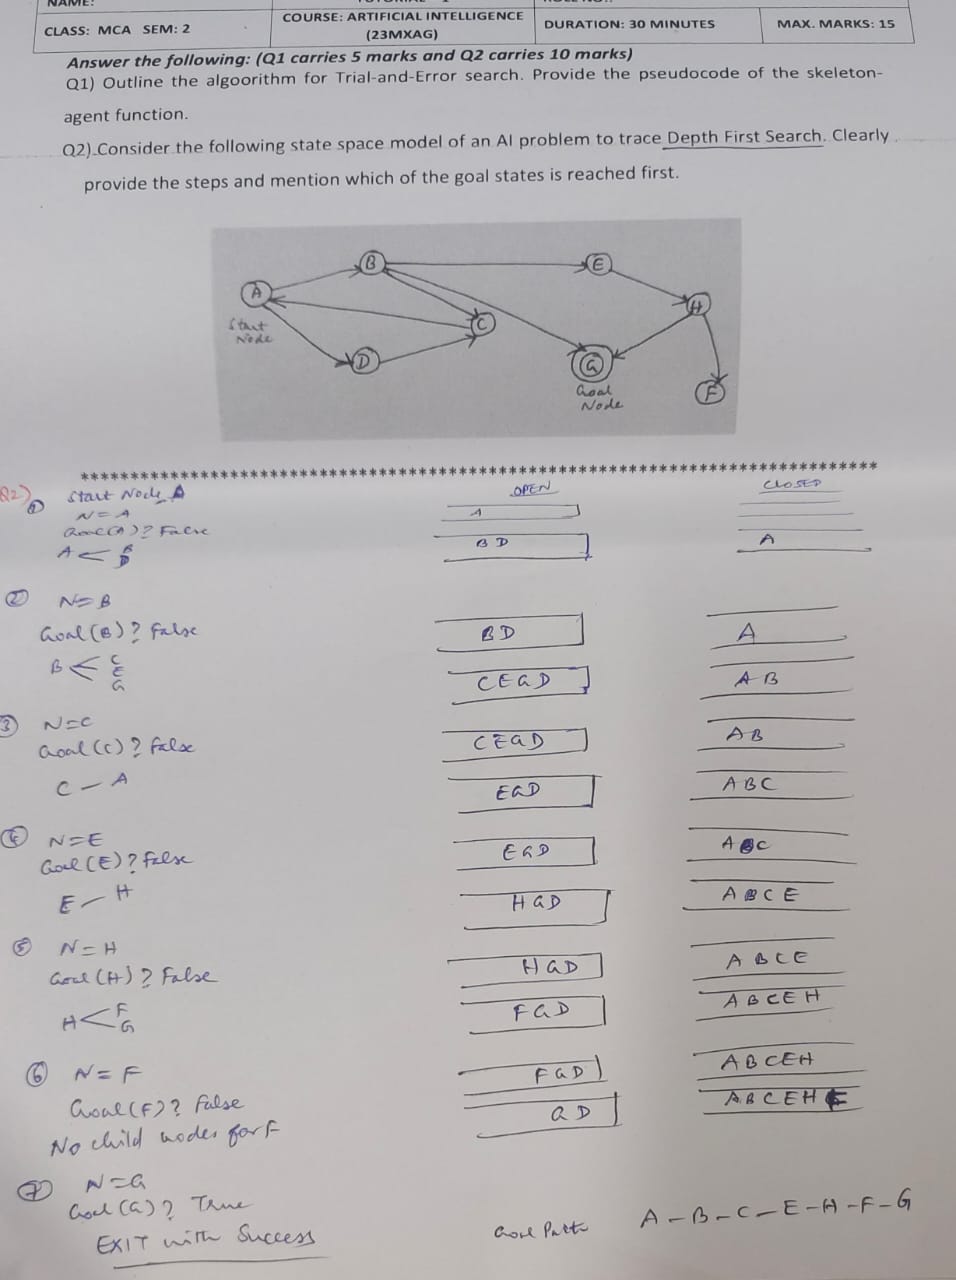 NAME:
CLASS: MCA SEM: 2
COURSE: ARTIFICIAL INTELLIGENCE
(23MXAG)
DURATION: 30 MINUTES
MAX. MARKS: 15
Answer the following: (Q1 carries 5 marks and Q2 carries 10 marks)
Q1) Outline the algoorithm for Trial-and-Error search. Provide the pseudocode of the skeleton-
agent function.
Q2) Consider the following state space model of an AI problem to trace Depth First Search. Clearly
provide the steps and mention which of the goal states is reached first.
B
E
A
H
Start
Node
C
D
G
Goal
Node
F
********************************************************************************
Q2)
① Start Node A
OPEN
CLOSED
N = A
A
Goal(A)? False
A < B D
B D
A
② N = B
Goal(B)? False
B D
A
B < C E G
C E G D
A B
③ N = C
Goal(C)? False
C E G D
A B
C - A
E G D
A B C
④ N = E
Goal(E)? False
E G D
A B C
E - H
H G D
A B C E
⑤ N = H
Goal(H)? False
H G D
A B C E
H < F G
F G D
A B C E H
⑥ N = F
F G D
A B C E H
Goal(F)? False
G D
A B C E H F
No child nodes for F
⑦ N = G
Goal(G)? True
EXIT with Success
Goal Path
A - B - C - E - H - F - G